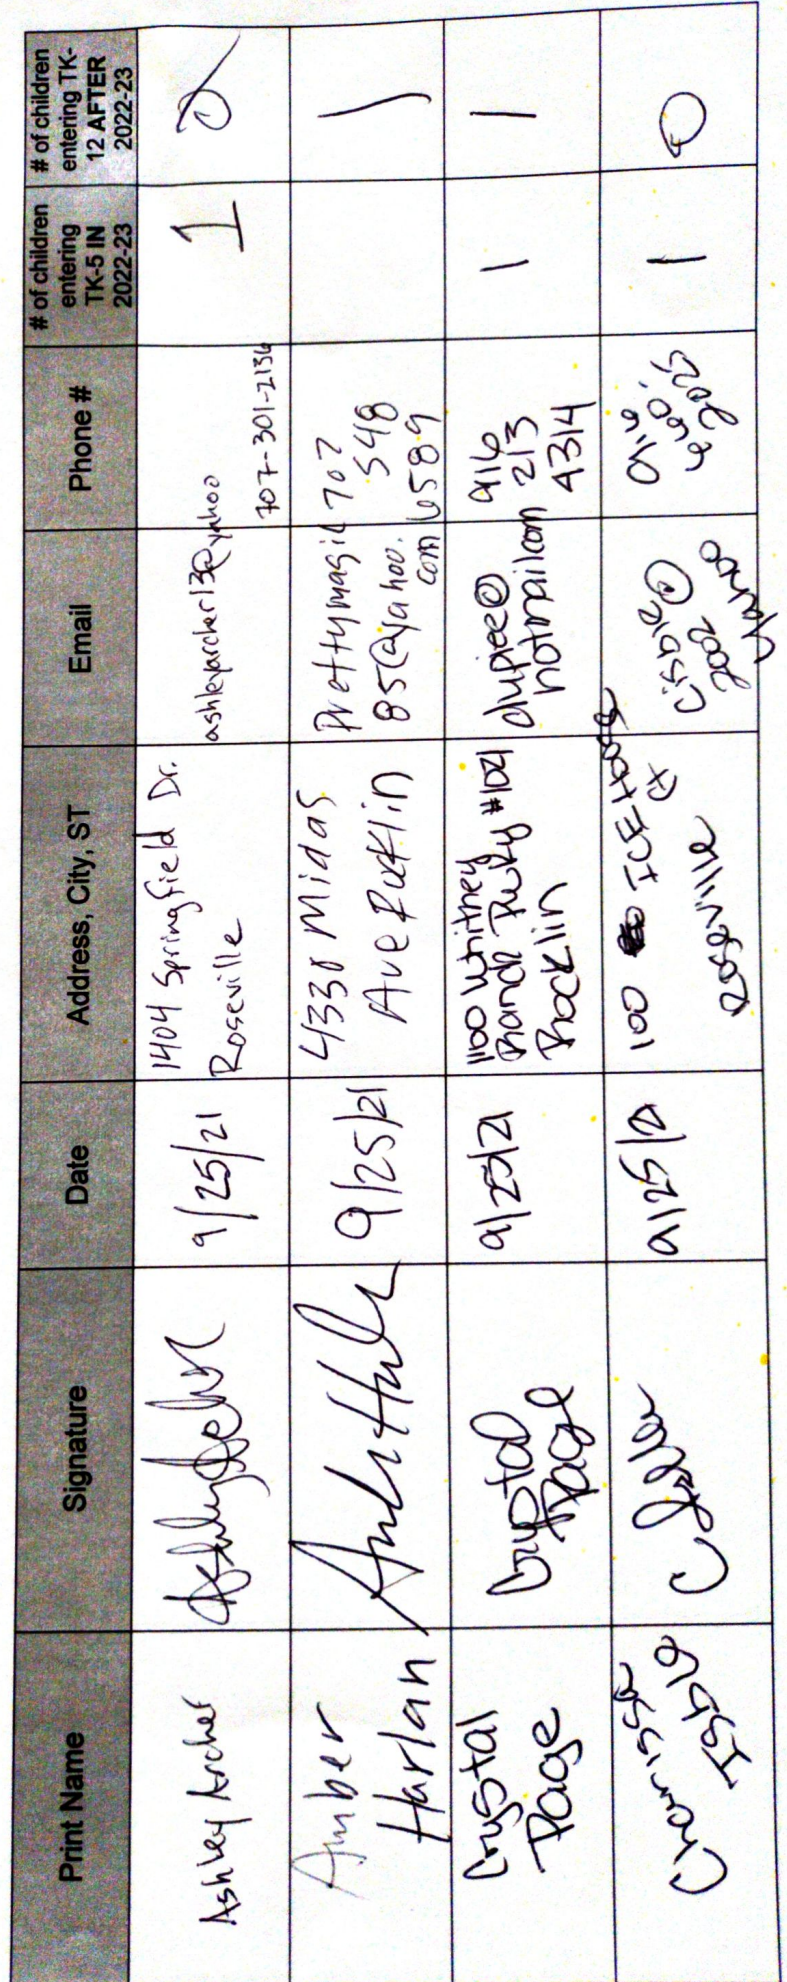 Print Name
Signature
Date
Address, City, ST
Email
Phone #
# of children
entering
TK-5 IN
2022-23
# of children
entering TK-
12 AFTER
2022-23
Ashley Archer
9/25/21
1404 Springfield Dr.
Roseville
ashleyarcher13@yahoo
707-301-2136
1
2
Amber
Harlan
9/25/21
4338 Midas
Ave Rocklin
Prettymagic
85@yahoo.
com
707
548
6589
1
Crystal
Page
Crystal
Page
9/25/21
1100 Whitney
Ranch Pkwy #1021
Rocklin
dupree@
hotmail.com
916
213
4314
1
1
Charrissa
Isble
9/25/21
100 ICE House
Ct
Roseville
Cisble
2002@
yahoo
916
660,
2025
1
0